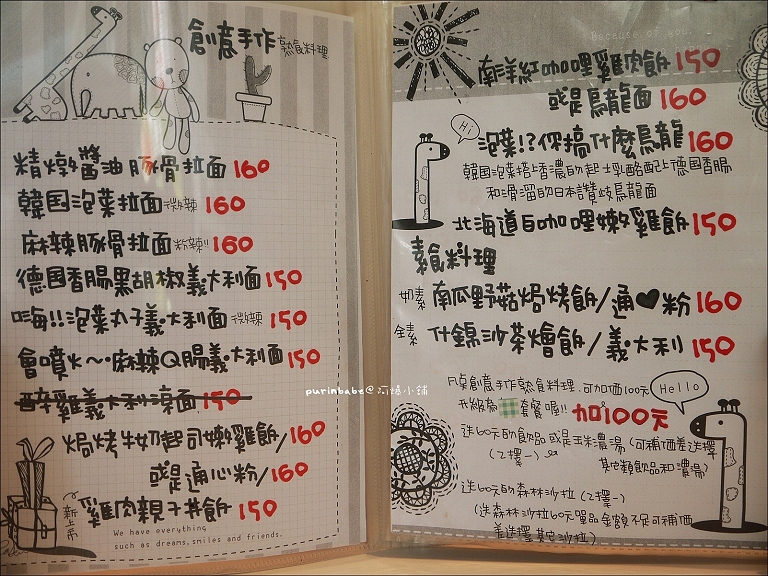 創意手作 熟食料理
精燉醬油豚骨拉面 160
韓国泡菜拉面 微辣 160
麻辣豚骨拉面 粉辣!! 160
德国香腸黑胡椒義大利面 150
嗨!!泡菜丸子義大利面 微辣 150
會噴火~‧麻辣Q腸義大利面 150
醉雞義大利涼面 150
焗烤牛奶起司嫩雞飯/160
或是通心粉/160
新上市
雞肉親子丼飯 150
We have everything
such as dreams, smiles and friends.
purinbabe@阿嬌小舖
Because of you
南洋紅咖哩雞肉飯 150
或是烏龍面 160
Hi
泡菜!?你搞什麼烏龍 160
韓国泡菜搭上香濃的起士乳酪配上德国香腸
和滑溜的日本讚歧烏龍面
北海道白咖哩嫩雞飯 150
素食料理
奶素 南瓜野菇焗烤飯/通♥粉 160
全素 什錦沙茶燴飯/義大利 150
凡点創意手作熟食料理.可加價100元
升級為套餐喔!! 加100元
Hello
送60元的飲品或是玉米濃湯(可補價差選擇
(2擇一) 其它類飲品和濃湯)
送60元的森林沙拉(2擇一)
(送森林沙拉60元單品金額不足可補價
差選擇其它沙拉)